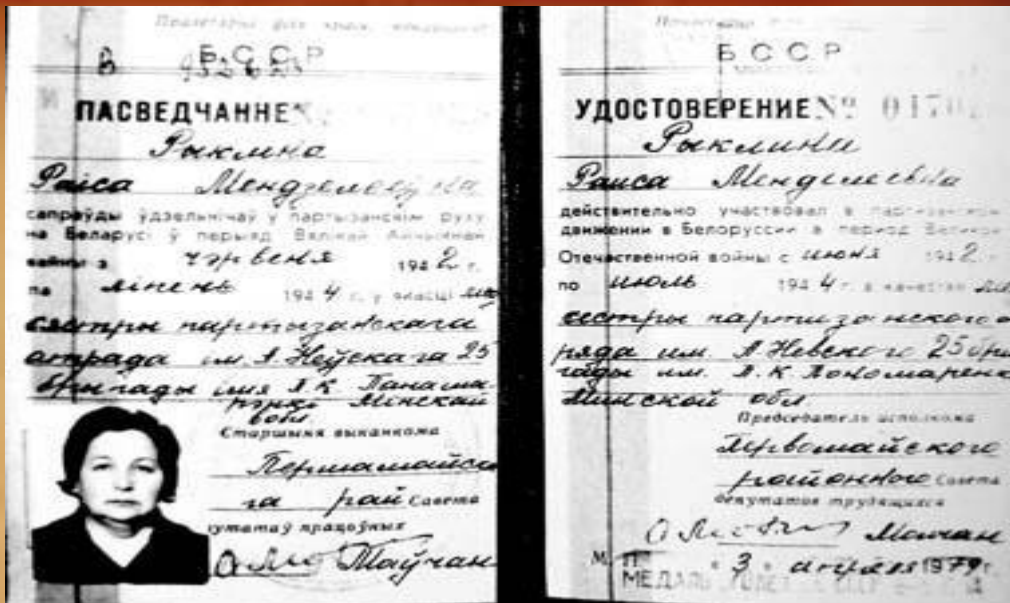 Б С С Р
В
ПАСВЕДЧАННЕ
Рыклина
Раіса Мендзелееўна
сапраўды ўдзельнічаў у партызанскім руху
на Беларусі ў перыяд Вялікай Айчыннай
вайны з чэрвеня 1942 г.
па ліпень 1944 г. у якасці
сестры партызанскага
атрада им. А. Неўскага 25
брыгады імя
Мінскай
вобл.
Старшыня выканкома
Першамайска
га рай Савета
дэпутатаў працоўных
Маўчан
Б С С Р
УДОСТОВЕРЕНИЕ № 0170
Рыклина
Раиса Менделеевна
действительно участвовал в партизанском
движении в Белоруссии в период Великой
Отечественной войны с июня 1942 г.
по июль 1944 г. в качестве
сестры партизанского о
ряда им. А Невского 25 бри
гады им. П. К Пономаренк
Минской обл
Председатель исполкома
Первомайского
районного Совета
депутатов трудящихся
Молчан
М. П. "3" апреля 1979 г.
МЕДАЛЬ